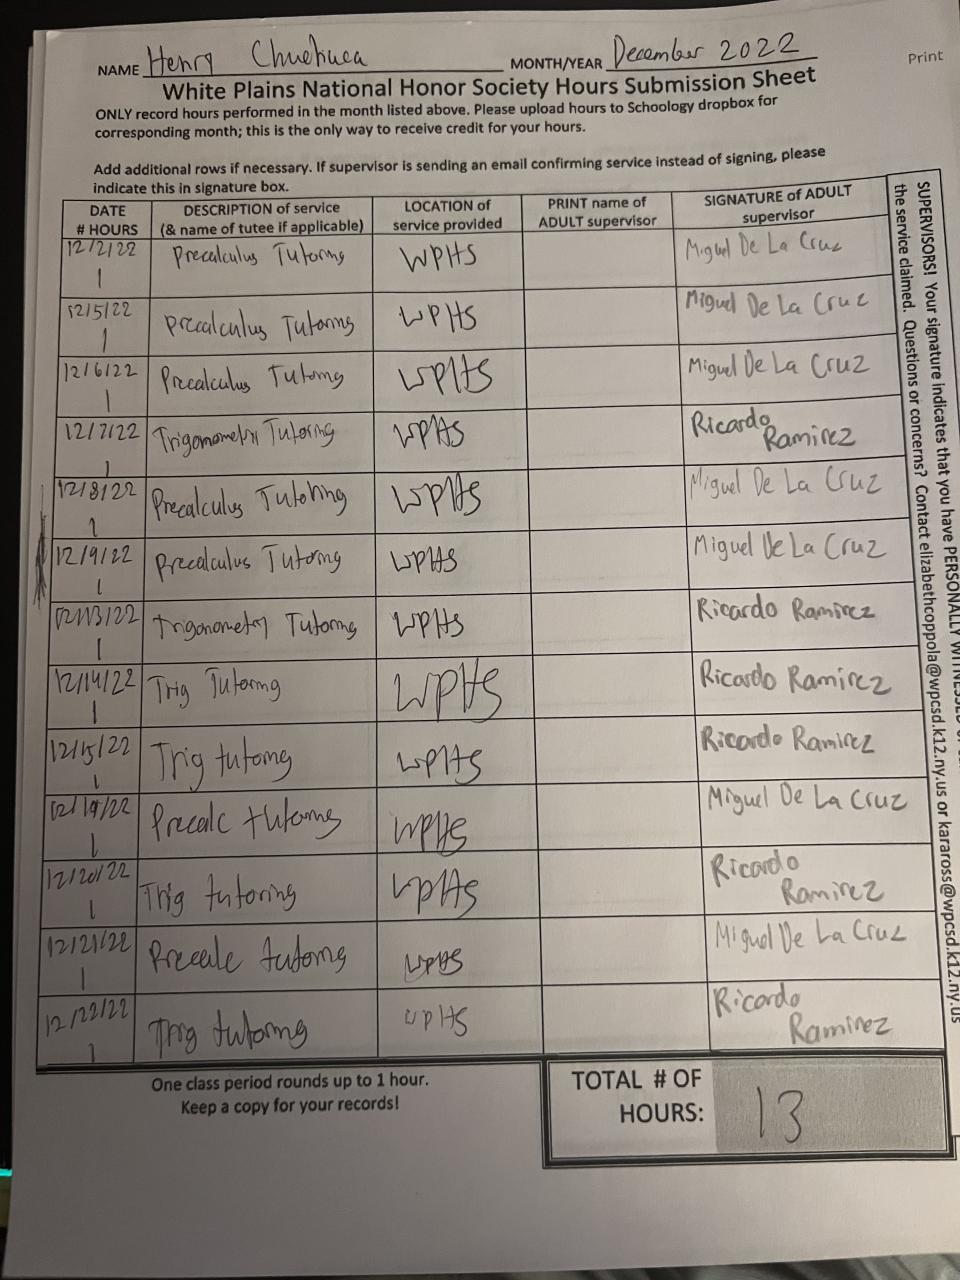 Print
NAME Henry Chuchuca MONTH/YEAR December 2022
White Plains National Honor Society Hours Submission Sheet
ONLY record hours performed in the month listed above. Please upload hours to Schoology dropbox for
corresponding month; this is the only way to receive credit for your hours.
Add additional rows if necessary. If supervisor is sending an email confirming service instead of signing, please
indicate this in signature box.
DATE # HOURS DESCRIPTION of service (& name of tutee if applicable) LOCATION of service provided PRINT name of ADULT supervisor SIGNATURE of ADULT supervisor
12/2/22 1 Precalculus Tutoring WPHS Miguel De La Cruz
12/5/22 1 Precalculus Tutoring WPHS Miguel De La Cruz
12/6/22 1 Precalculus Tutoring WPHS Miguel De La Cruz
12/7/22 1 Trigonometry Tutoring WPHS Ricardo Ramirez
12/8/22 1 Precalculus Tutoring WPHS Miguel De La Cruz
12/9/22 1 Precalculus Tutoring WPHS Miguel De La Cruz
12/13/22 1 Trigonometry Tutoring WPHS Ricardo Ramirez
12/14/22 1 Trig Tutoring WPHS Ricardo Ramirez
12/15/22 1 Trig tutoring WPHS Ricardo Ramirez
12/19/22 1 Precalc tutoring WPHS Miguel De La Cruz
12/20/22 1 Trig tutoring WPHS Ricardo Ramirez
12/21/22 1 Precalc tutoring WPHS Miguel De La Cruz
12/22/22 1 Trig tutoring WPHS Ricardo Ramirez
One class period rounds up to 1 hour.
Keep a copy for your records!
TOTAL # OF HOURS: 13
SUPERVISORS! Your signature indicates that you have PERSONALLY WITNESSED
the service claimed. Questions or concerns? Contact elizabethcoppola@wpcsd.k12.ny.us or karaross@wpcsd.k12.ny.us